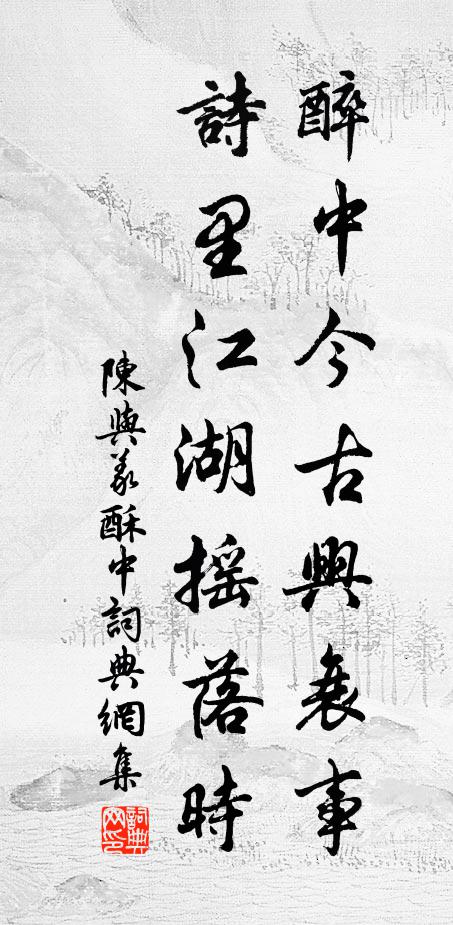 醉中今古興衰事
詩里江湖摇落時
陳與義醉中詞典網集
詞典網印